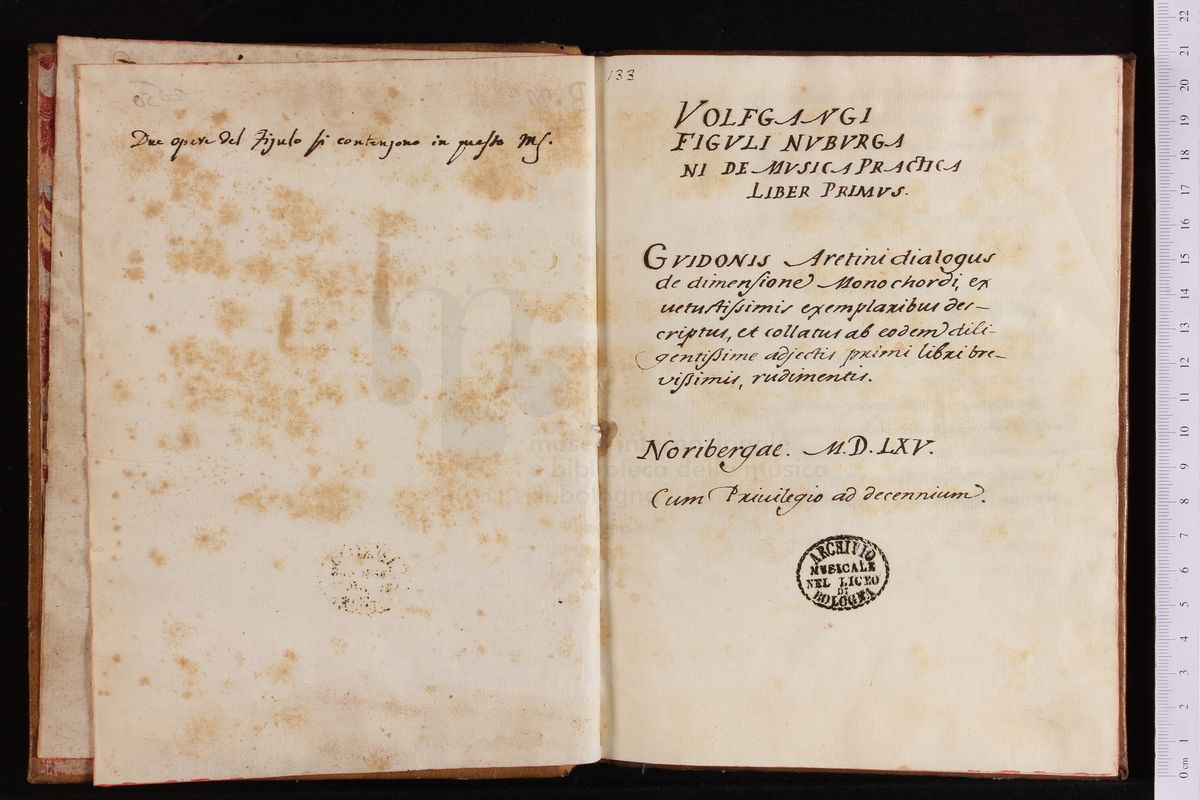 Due opere del Figulo si contengono in questo MS.
133
VOLFGANGI
FIGVLI NVBVRGA
NI DE MVSICA PRACTICA
LIBER PRIMVS.
GVIDONIS Aretini dialogus
de dimensione Monochordi, ex
uetustissimis exemplaribus des-
criptus, et collatus ab eodem dili-
gentißime adjectis primi libri bre-
vißimis, rudimentis.
Noribergae. M.D.LXV.
Cum Priuilegio ad decennium.
ARCHIVIO
MUSICALE
NEL LICEO
DI
BOLOGNA
museo internazionale
e biblioteca della musica
di bologna
0 cm 1 2 3 4 5 6 7 8 9 10 11 12 13 14 15 16 17 18 19 20 21 22